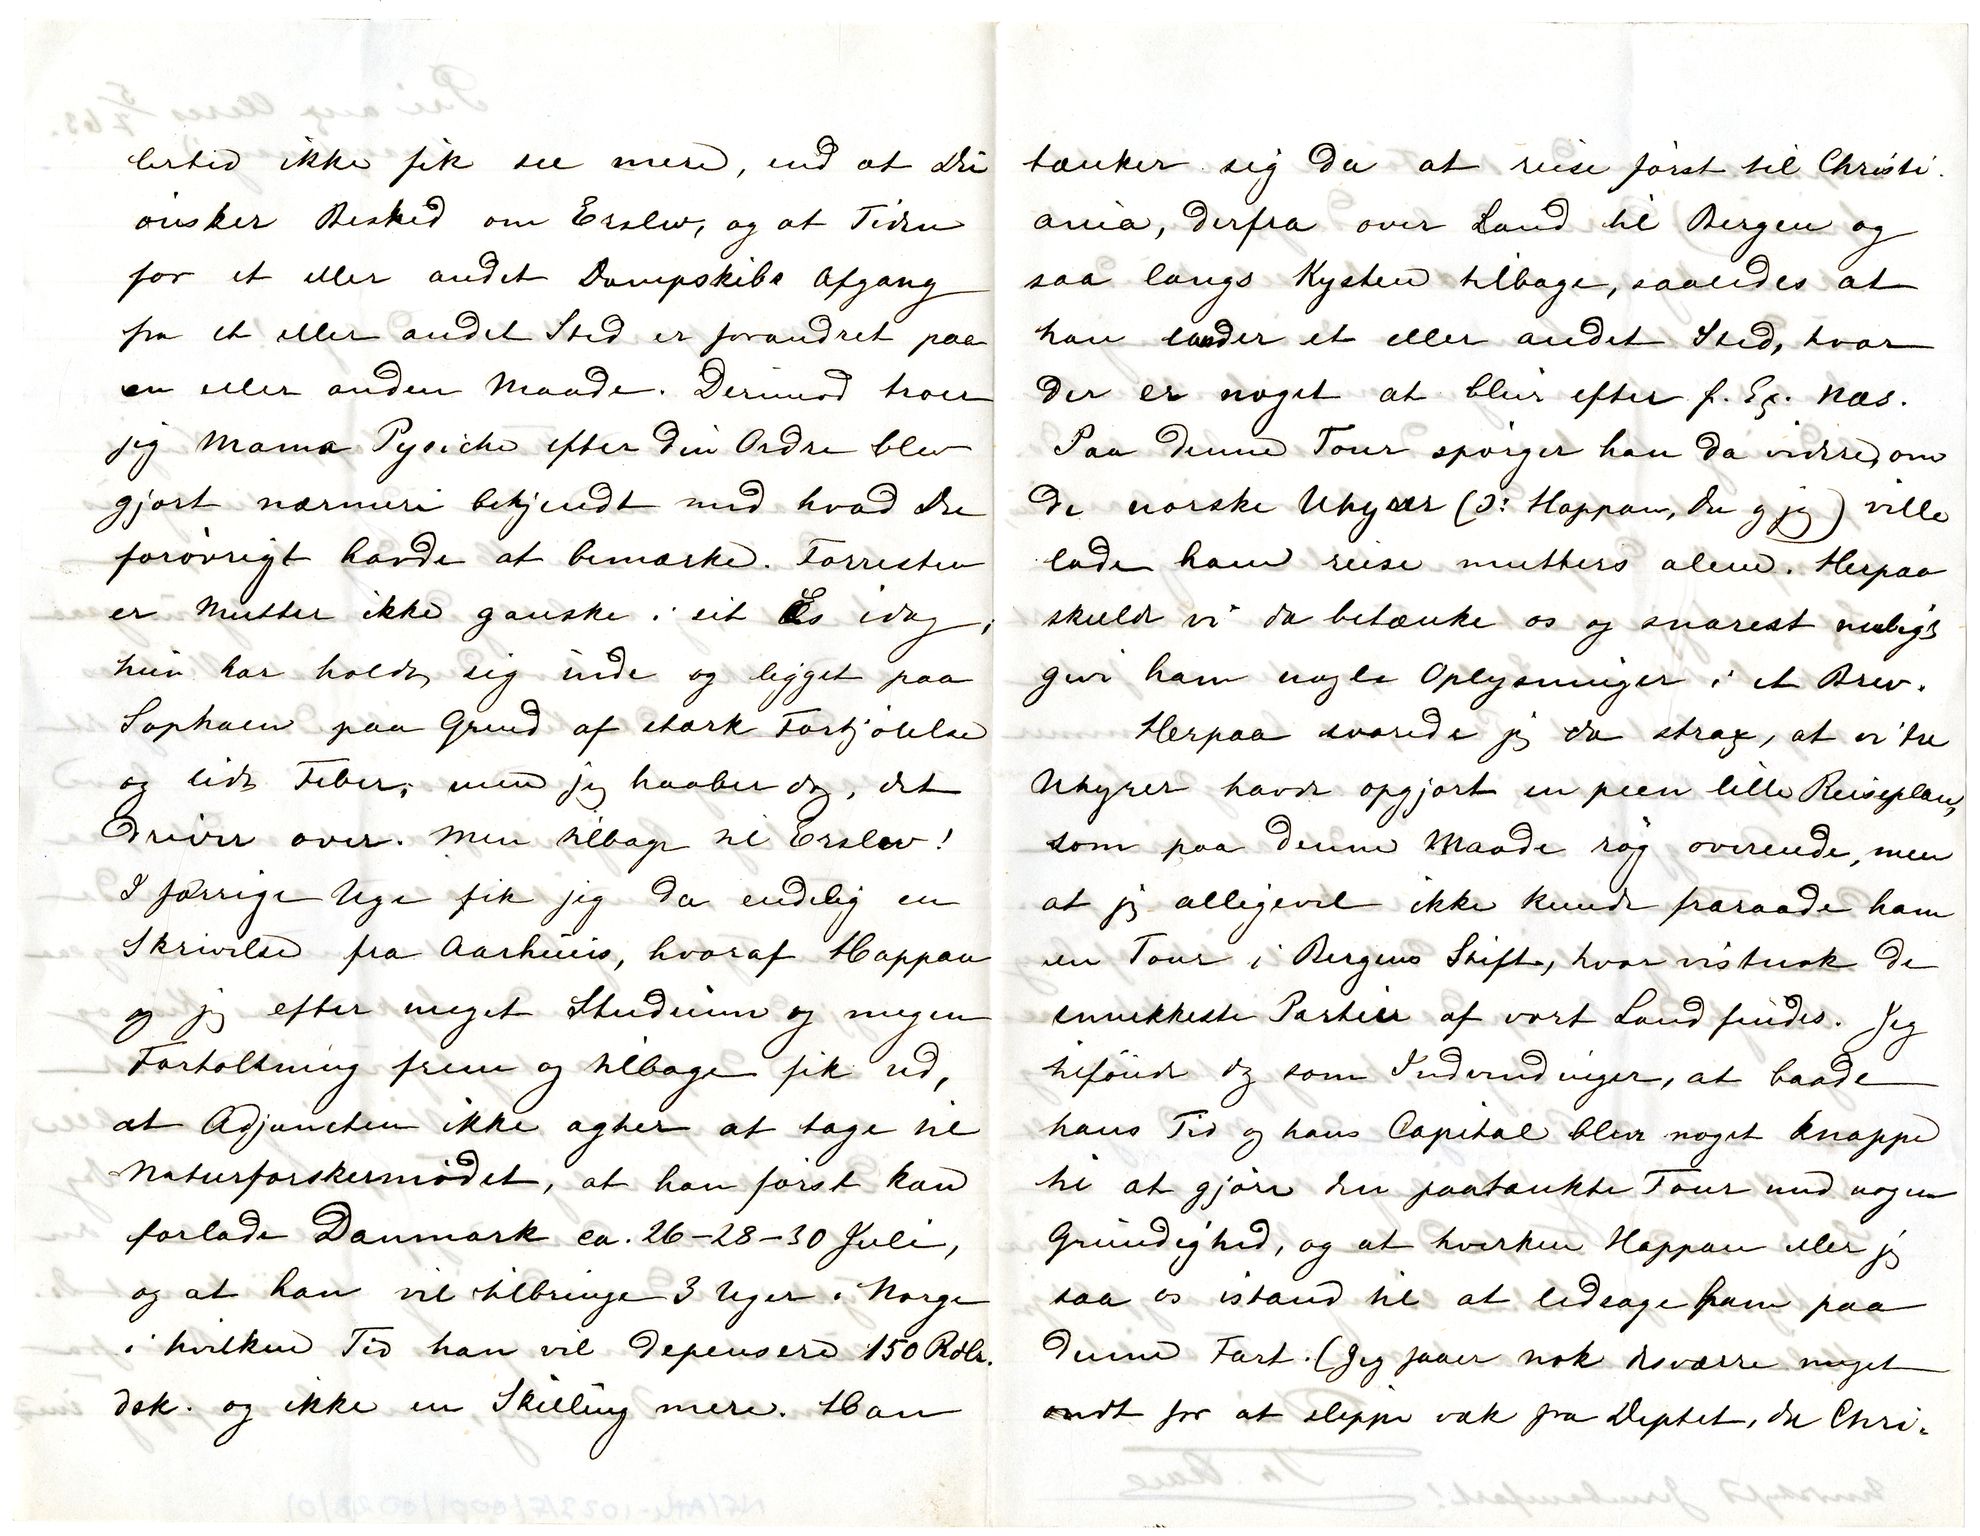 lertid ikke fik see mere, end at Du
önsker Besked om Erslew, og at Tiden
for et eller andet Dampskibs Afgang
fra et eller andet Sted er forandret paa
en eller anden Maade. Derimod troer
jeg Mama Pysiche efter din Ordre blev
gjort nærmere bekjendt med hvad Du
forövrigt havde at bemærke. Forresten
er Mutter ikke ganske i sit Es idag,
hun har holdt sig inde og ligget paa
Sophaen paa Grund af stærk Forkjölelse
og lidt Feber, men jeg haaber dog, det
driver over. Men tilbage til Erslew!
I forrige Uge fik jeg da endelig en
Skrivelse fra Aarhuus, hvoraf Happan
og jeg efter meget Studium og megen
Fortolkning frem og tilbage fik ud,
at Adjuncten ikke agter at tage til
Naturforskermödet, at han först kan
forlade Danmark ca. 26-28-30 Juli,
og at han vil tilbringe 3 Uger i Norge
i hvilken Tid han vil depensere 150 Rdlr.
dsk. og ikke en Skilling mere. Han
tænker sig da at reise först til Christi-
ania, derfra over Land til Bergen og
saa langs Kysten tilbage, saaledes at
han lander et eller andet Sted, hvor
der er noget at blive efter f. Ex. Næs.
Paa denne Tour spörger han da videre, om
de norske Uhyrer (ɔ: Happan, Du og jeg) ville
lade ham reise mutters alene. Herpaa
skulde vi da betænke os og snarest muligt
give ham nogle Oplysninger i et Brev.
Herpaa svarede jeg da strax, at vi tre
Uhyrer havde opgjort en peen lille Reiseplan,
som paa denne Maade rög overende, men
at jeg alligevel ikke kunde fraraade ham
en Tour i Bergens Stift, hvor vistnok de
smukkeste Partier af vort Land findes. Jeg
tilföiede dog som Indvendinger, at baade
hans Tid og hans Capital blev noget knappe
til at gjöre den paatænkte Tour med nogen
Grundighed, og at hverken Happan eller jeg
saa os istand til at ledsage ham paa
denne Fart. (Jeg faaer nok desværre meget
ondt for at slippe væk fra Deptet, da Chri-